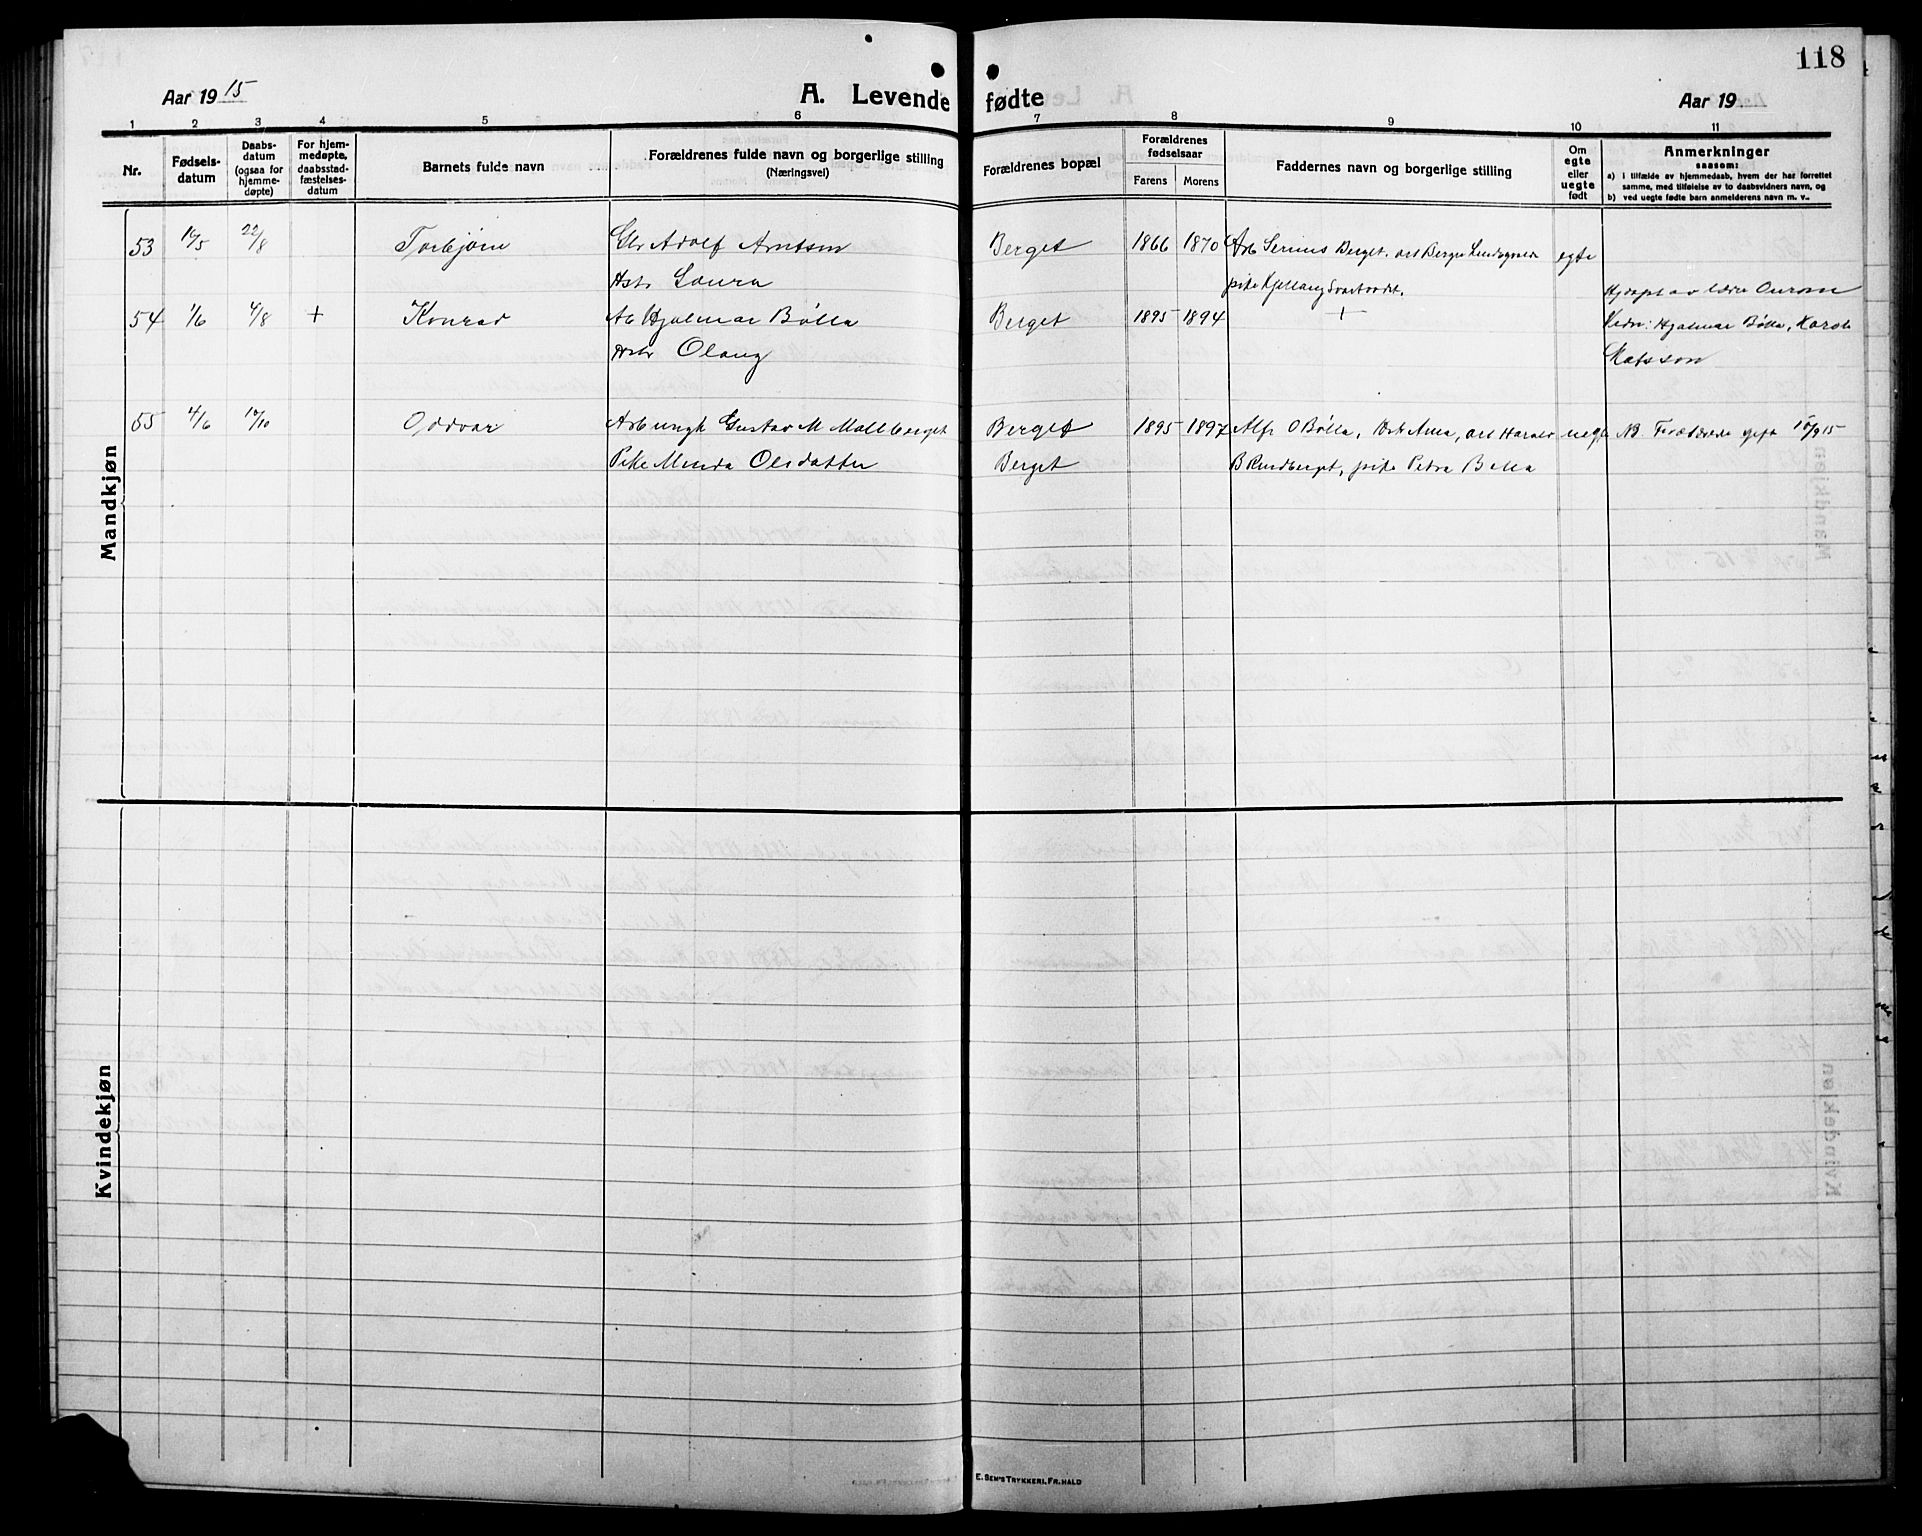 118
Aar 1915
A. Levende fødte
Aar 19
1 2 3 4 5 6 7 8 9 10 11
Nr.
Fødsels-
datum
Daabs-
datum
(ogsaa for
hjemme-
døpte)
For hjem-
medøpte,
daabsstad-
fæstelses-
datum
Barnets fulde navn
Forældrenes fulde navn og borgerlige stilling
(Næringsvei)
Forældrenes bopæl
Forældrenes
fødselsaar
Farens Morens
Faddernes navn og borgerlige stilling
Om
egte
eller
uegte
født
Anmerkninger
saasom:
a) i tilfælde av hjemmedaab, hvem der har forrettet
samme, med tilføielse av to daabsvidners navn, og
b) ved uegte fødte barn anmelderens navn m. v..
Mandkjøn
53 22/8 Torbjørn Adolf Arntsen Berget 1866 1870 Arb Serinus Berget, egte
Hstr Laura pike
54 1/6 4/8 + Konrad Hjalmar Bølla Berget 1895 1894 +
Hjdøpt av lærer
Vidn: Hjalmar Bølla, Karole
Hstr Olaug
Matsson
55 4/6 10/10 Oddvar Arb ungk Gustav M Mellberget Berget 1895 1897 Alfr O Bølla, Hst Anna, arb Harald uegte NB. Forældrene gift 15/9 15
Pike Minda Olsdatter Berget B Rundberget, pike Petra Bølla
Kvindekjøn
E. Sem's Trykkeri, Fr.hald